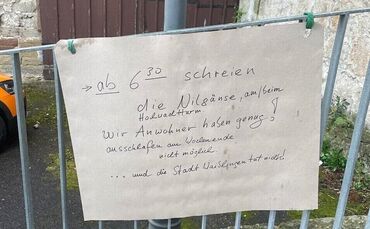 → ab 6 30 schreien
die Nilgänse, am/beim
Hochwachtturm
Wir Anwohner haben genug!
ausschlafen am Wochenende
nicht möglich
... und die Stadt Waiblingen tut nichts!